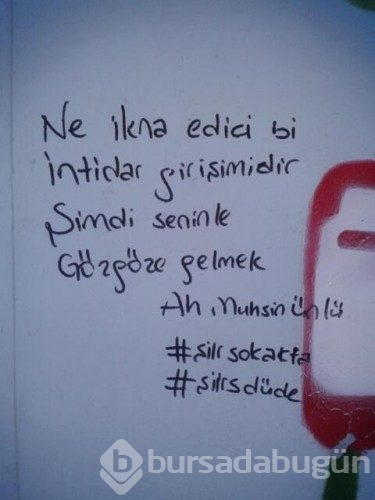 Ne ikna edici bi
intidar girişimidir
Şimdi seninle
Gözgöze gelmek
Ah Muhsin Ünlü
#şiirsokakta
#şiirsdüde
bursadabugün